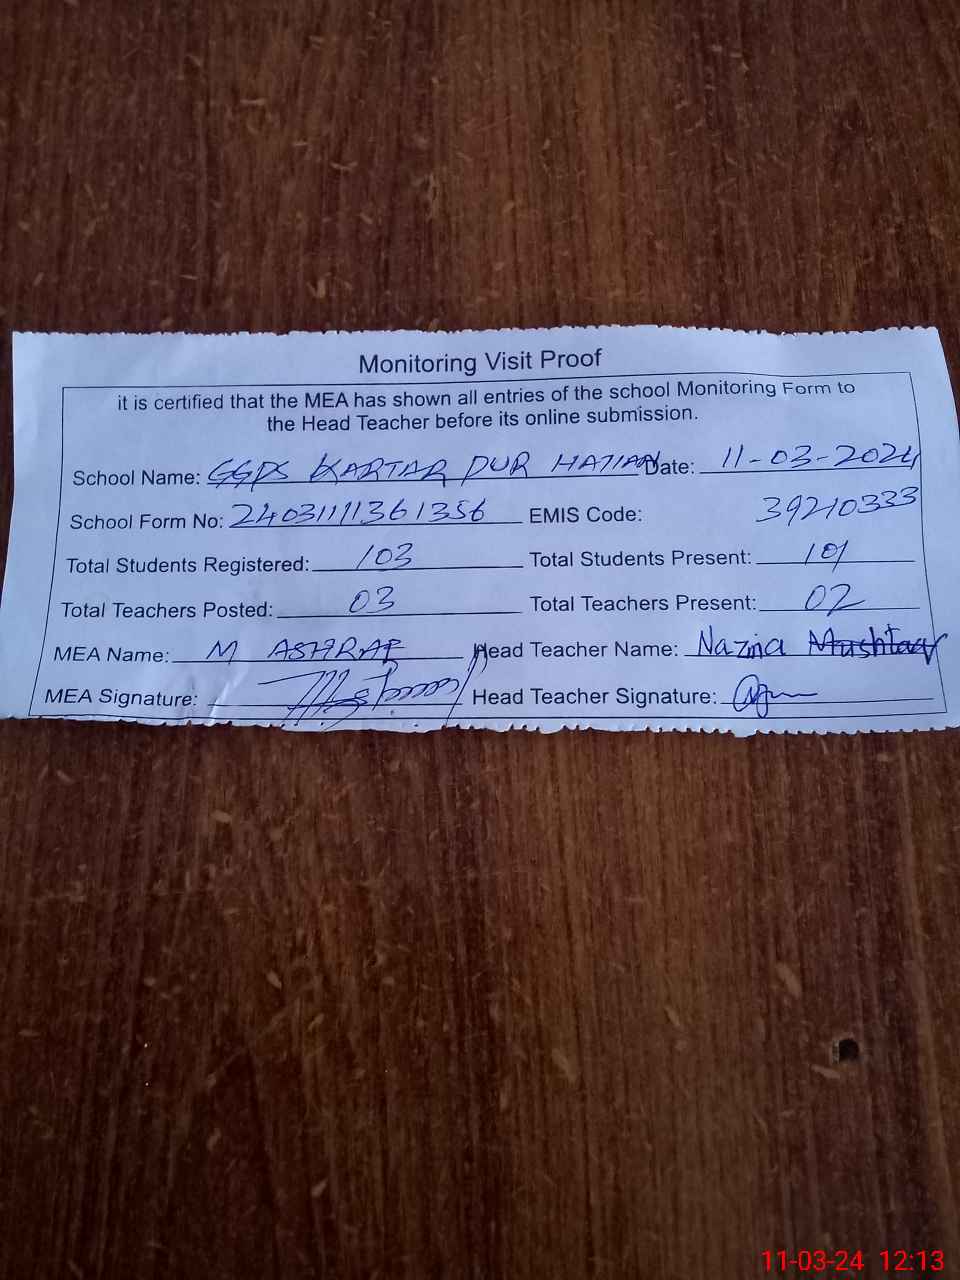 Monitoring Visit Proof
it is certified that the MEA has shown all entries of the school Monitoring Form to
the Head Teacher before its online submission.
School Name: GGPS KARTAR PUR HATIAN Date: 11-03-2024
School Form No: 2403111361356 EMIS Code: 39210333
Total Students Registered: 103 Total Students Present: 101
Total Teachers Posted: 03 Total Teachers Present: 02
MEA Name: M ASHRAF Head Teacher Name: Nazina Mushtaq
MEA Signature: Head Teacher Signature:
11-03-24 12:13